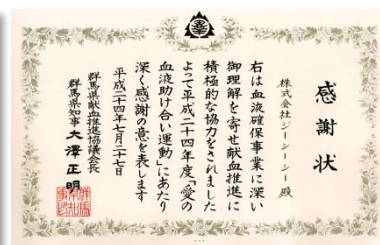 感謝状
株式会社ジーシーシー 殿
右は血液確保事業に深い
御理解を寄せ献血推進に
積極的な協力をされました
よって平成二十四年度「愛の
血液助け合い運動」にあたり
深く感謝の意を表します
平成二十四年七月二十七日
群馬県献血推進協議会長
群馬県知事 大澤正明